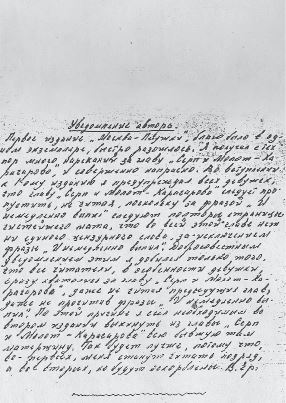 Уведомление автора.
Первое издание „Москва – Петушки", благо было в од-
ном экземпляре, быстро разошлось. Я получил с тех
пор много нареканий за главу „Серп и Молот – Ка-
рачарово", и совершенно напрасно. Во вступлении
к 1-ому изданию я предупреждал всех девушек,
что главу „Серп и Молот – Карачарово" следует про-
пустить, не читая, поскольку за фразой „И
немедленно выпил" следуют полторы страницы
чистейшего мата, что во всей этой главе нет
ни единого цензурного слова, за исключением
фразы „И немедленно выпил". Добросовестным
уведомлением этим я добился только того,
что все читатели, в особенности девушки,
сразу хватались за главу „Серп и Молот – Ка-
рачарово", даже не читая предыдущих глав,
даже не прочитав фразы „И немедленно вы-
пил". По этой причине я счёл необходимым во
втором издании выкинуть из главы „Серп
и Молот – Карачарово" всю бывшую там
матерщину. Так будет лучше, потому что,
во-первых, меня станут читать подряд,
а во вторых, не будут оскорблены. В. Ер.